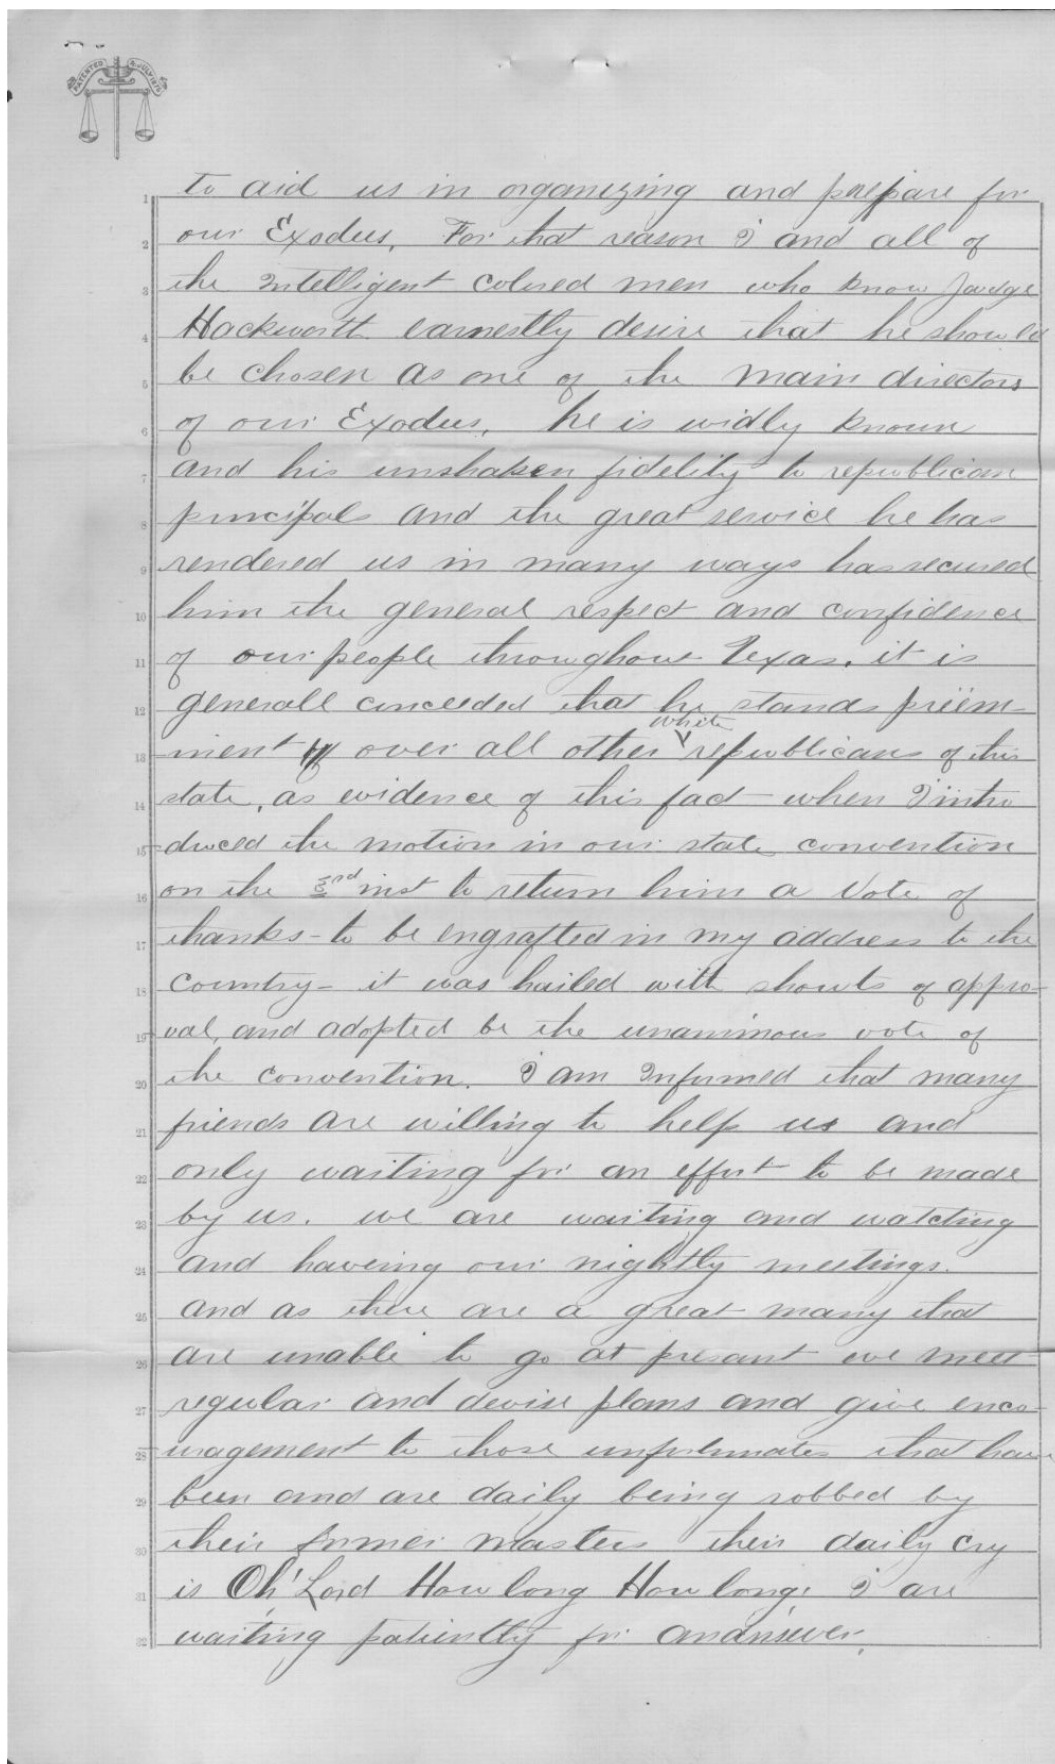 PATENTED 8. JULY 1875
to aid us in organizing and prepare for
our Exodus. For that reason I and all of
the Intelligent colored men who know Judge
Hackworth earnestly desire that he should
be chosen as one of the main directors
of our Exodus. he is widly known
and his unshaken fidelity to republican
principals and the great service he has
rendered us in many ways has secured
him the general respect and confidence
of our people throughout Texas. it is
generall conceeded that he stands preëm-
white
inent over all other republicans of this
state, as evidence of this fact - when I intro
duced the motion in our state convention
on the 3nd inst to return him a Vote of
thanks - to be engrafted in my address to the
country - it was hailed with shouts of appro-
val, and adopted be the unanimous vote of
the convention. I am Informed that many
friends are willing to help us and
only waiting for an effort to be made
by us. we are waiting and watching
and haveing our nightly meetings.
and as there are a great many that
are unable to go at presant we meet
regular and devise plans and give enco-
uragement to those unfortunates that have
been and are daily being robbed by
their former masters their daily cry
is Oh' Lord How long How long! I are
waiting patiently for an answer.